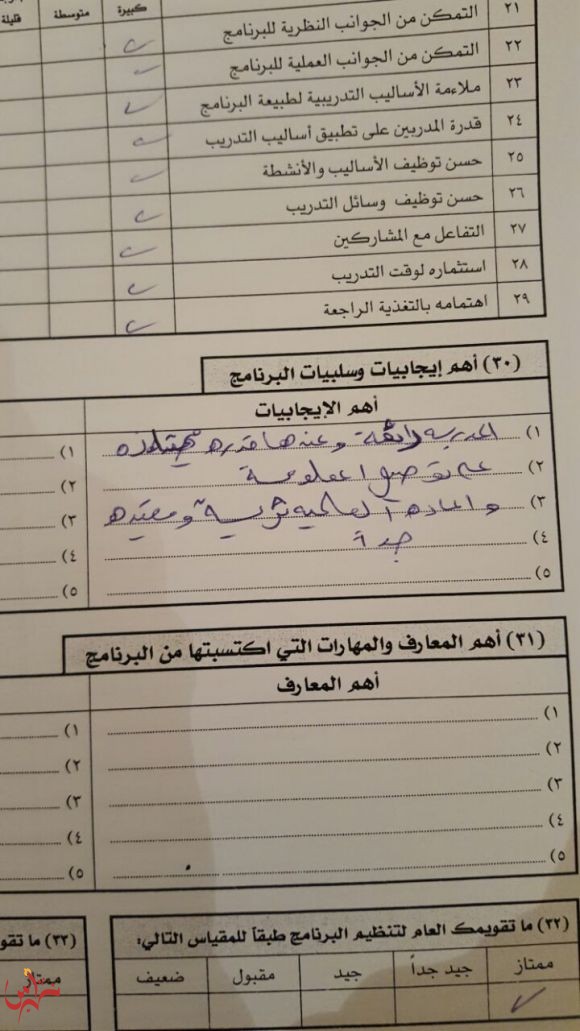 كبيرة متوسطة قليلة
٢١ التمكن من الجوانب النظرية للبرنامج
٢٢ التمكن من الجوانب العملية للبرنامج
٢٣ ملاءمة الأساليب التدريبية لطبيعة البرنامج
٢٤ قدرة المدربين على تطبيق أساليب التدريب
٢٥ حسن توظيف الأساليب والأنشطة
٢٦ حسن توظيف وسائل التدريب
٢٧ التفاعل مع المشاركين
٢٨ استثماره لوقت التدريب
٢٩ اهتمامه بالتغذية الراجعة
(٣٠) أهم إيجابيات وسلبيات البرنامج
أهم الإيجابيات
١) المدربه رائعة وعندها قدره ممتازه ١)
٢) على توصيل المعلومة ٢)
٣) والماده العلميه ثرية ومفيده ٣)
٤) جداً ٤)
٥) ٥)
(٣١) أهم المعارف والمهارات التي اكتسبتها من البرنامج
أهم المعارف
١) ١)
٢) ٢)
٣) ٣)
٤) ٤)
٥) ٥)
(٣٢) ما تقويمك العام لتنظيم البرنامج طبقاً للمقياس التالي:
ممتاز جيد جداً جيد مقبول ضعيف
(٣٣) ما تقو
ممتاز